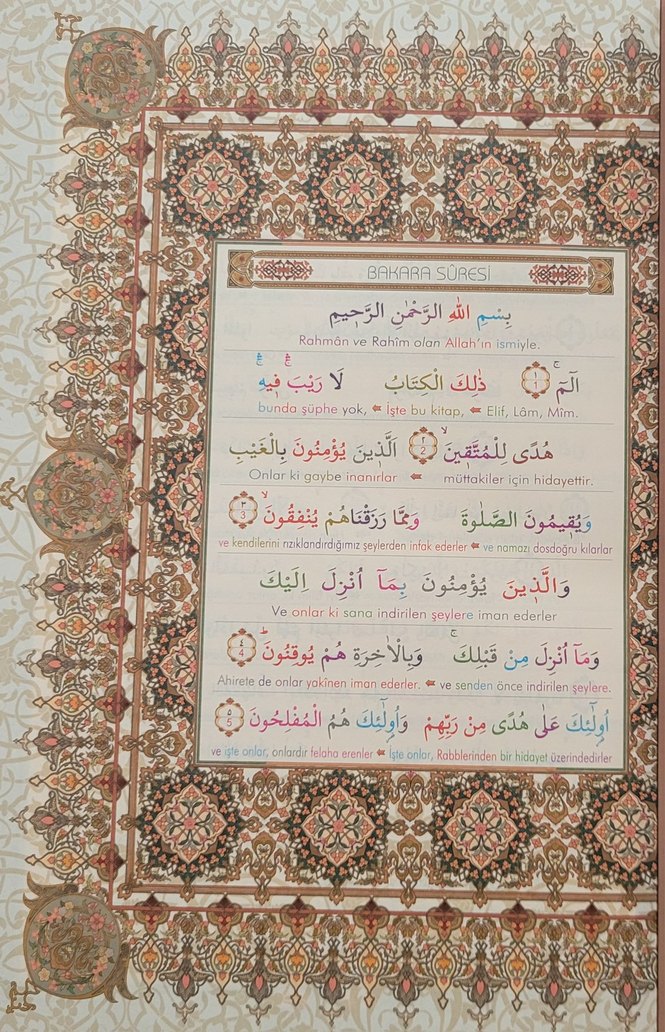 BAKARA SÛRESİ
بِسْمِ اللهِ الرَّحْمٰنِ الرَّحٖيمِ
Rahmân ve Rahîm olan Allah'ın ismiyle.
الٓمٓ ۚ ﴿١﴾ 1 ذٰلِكَ الْكِتَابُ لَا رَيْبَ ۛ فٖيهِ ۛ
bunda şüphe yok, ⬅ İşte bu kitap, ⬅ Elif, Lâm, Mîm.
هُدًى لِلْمُتَّقٖينَ ۙ ﴿٢﴾ 2 اَلَّذٖينَ يُؤْمِنُونَ بِالْغَيْبِ
Onlar ki gaybe inanırlar ⬅ müttakiler için hidayettir.
وَيُقٖيمُونَ الصَّلٰوةَ وَمِمَّا رَزَقْنَاهُمْ يُنْفِقُونَ ۙ ﴿٣﴾ 3
ve kendilerini rızıklandırdığımız şeylerden infak ederler ⬅ ve namazı dosdoğru kılarlar
وَالَّذٖينَ يُؤْمِنُونَ بِمَٓا اُنْزِلَ اِلَيْكَ
Ve onlar ki sana indirilen şeylere iman ederler
وَمَٓا اُنْزِلَ مِنْ قَبْلِكَ ۚ وَبِالْاٰخِرَةِ هُمْ يُوقِنُونَ ۜ ﴿٤﴾ 4
Ahirete de onlar yakînen iman ederler. ⬅ ve senden önce indirilen şeylere.
اُو۬لٰٓئِكَ عَلٰى هُدًى مِنْ رَبِّهِمْ وَاُو۬لٰٓئِكَ هُمُ الْمُفْلِحُونَ ﴿٥﴾ 5
ve işte onlar, onlardır felaha erenler ⬅ İşte onlar, Rabblerinden bir hidayet üzerindedirler